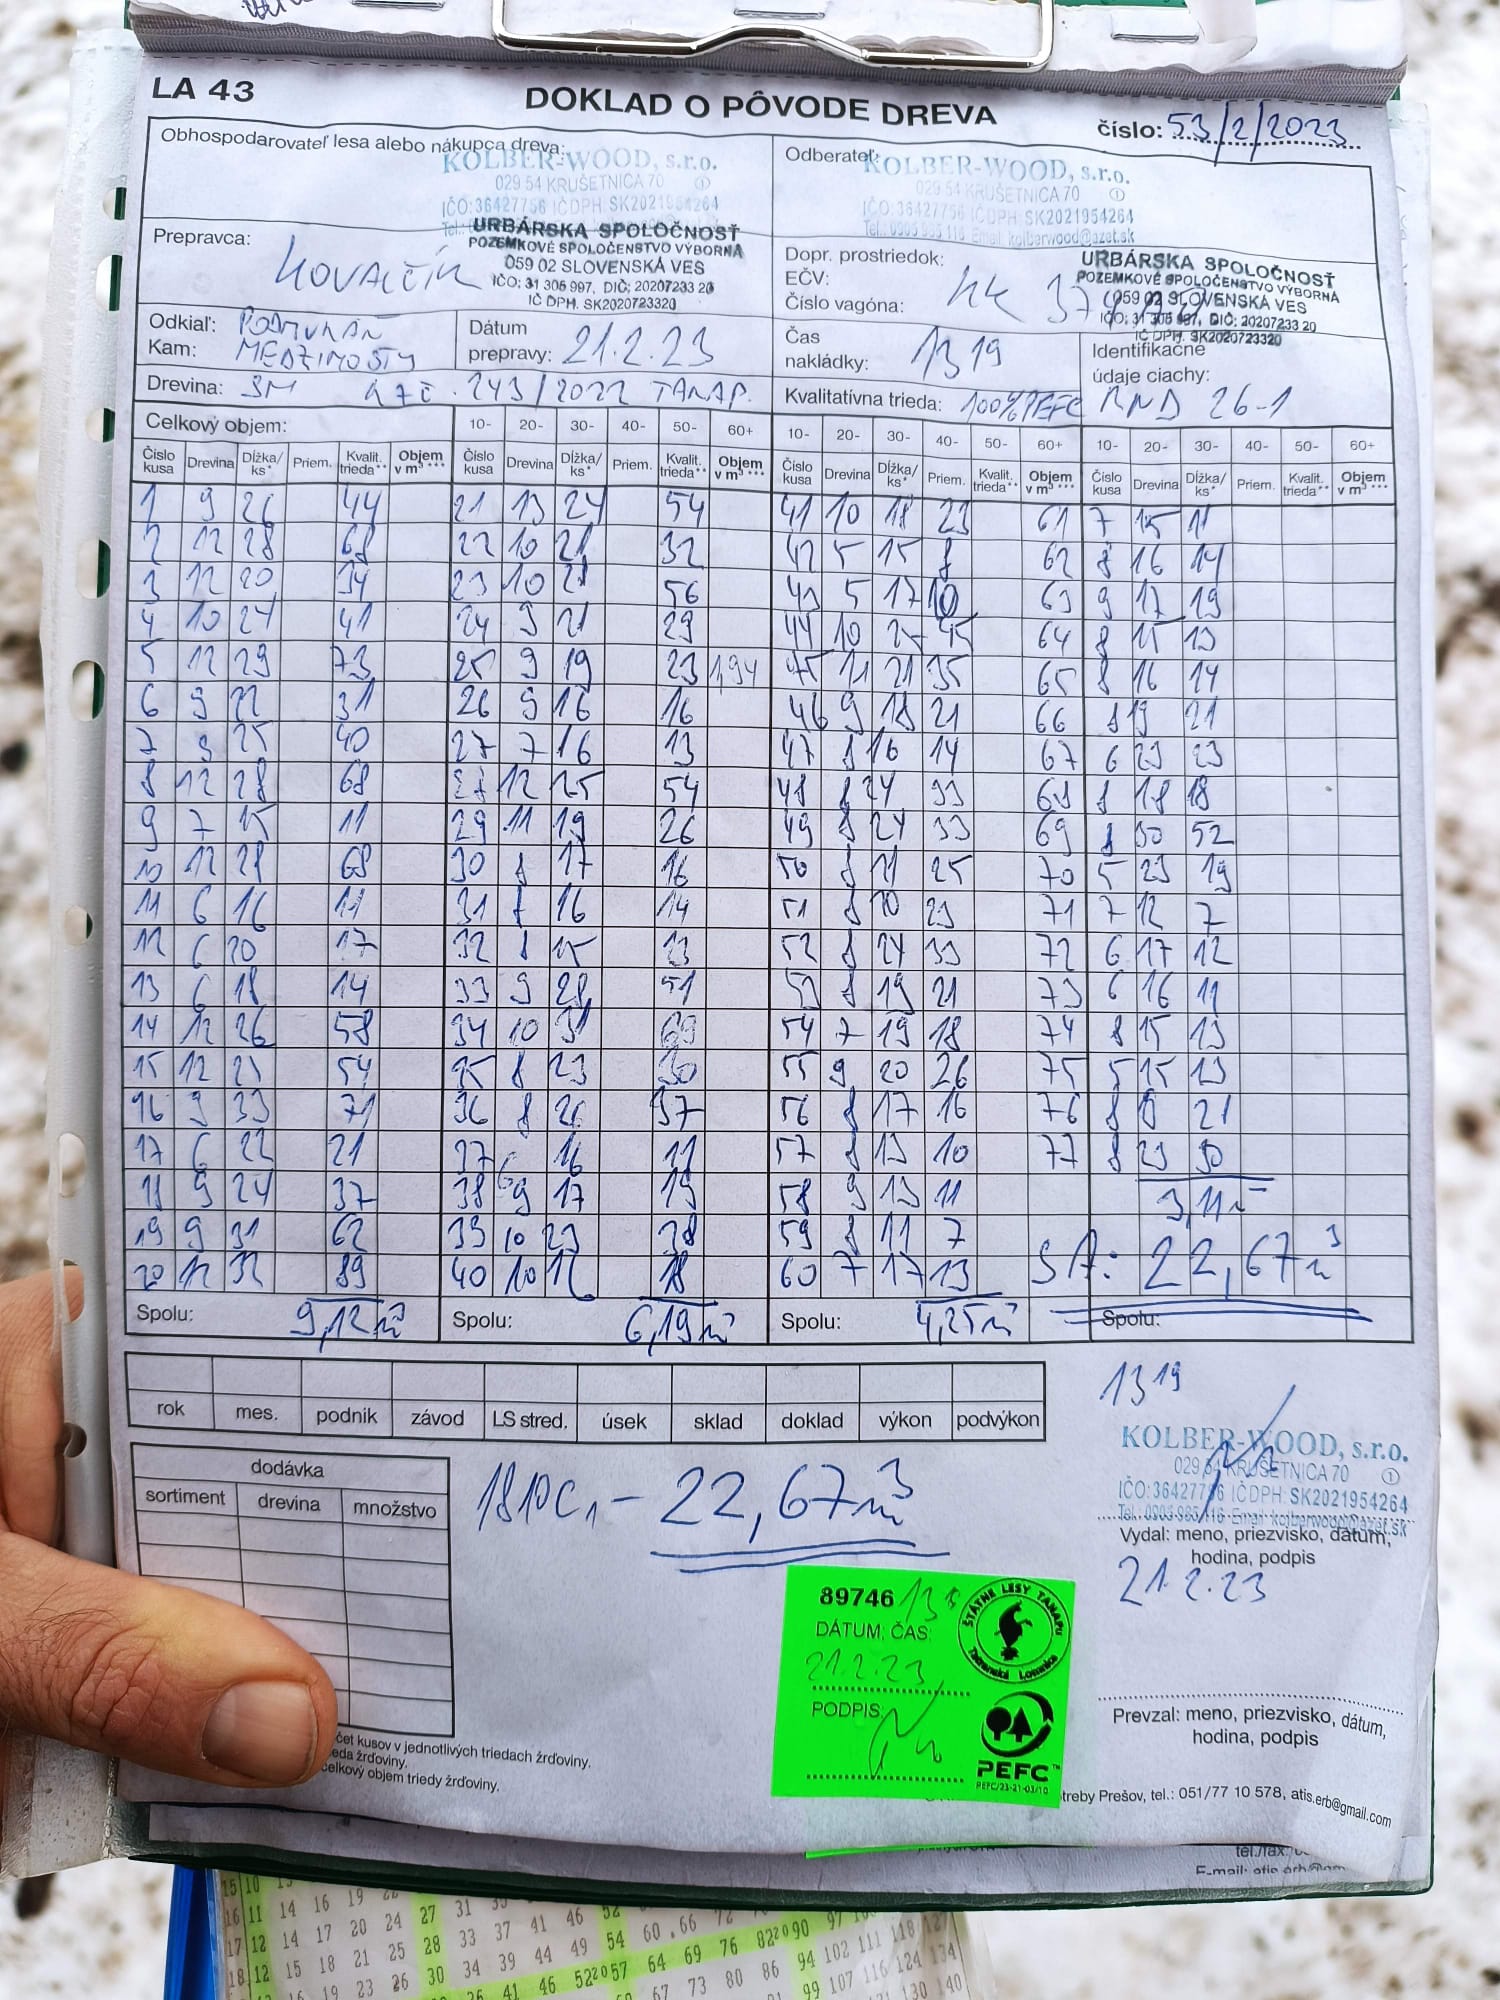 LA 43
DOKLAD O PÔVODE DREVA
číslo: 53/2/2023
Obhospodarovateľ lesa alebo nákupca dreva:
KOLBER-WOOD, s.r.o.
029 54 KRUŠETNICA 70
IČO:36427756 IČDPH:SK2021954264
Odberateľ:
KOLBER-WOOD, s.r.o.
029 54 KRUŠETNICA 70
IČO:36427756 IČDPH:SK2021954264
Tel.: 0905 985 116 Email: kolberwood@azet.sk
Prepravca: KOVALČÍK
URBÁRSKA SPOLOČNOSŤ
POZEMKOVÉ SPOLOČENSTVO VÝBORNÁ
059 02 SLOVENSKÁ VES
IČO: 31 305 997, DIČ: 20207233 20
IČ DPH. SK2020723320
Dopr. prostriedok:
EČV: KK
Číslo vagóna:
URBÁRSKA SPOLOČNOSŤ
POZEMKOVÉ SPOLOČENSTVO VÝBORNÁ
059 02 SLOVENSKÁ VES
IČO: 31 305 997, DIČ: 20207233 20
IČ DPH. SK2020723320
Odkiaľ:
Kam: MEDZIMOSTY
Dátum
prepravy: 21.2.23
Čas
nakládky: 13 19
Identifikačné
údaje ciachy:
RND 26-1
Drevina: SM 243/2022 TANAP.
Kvalitatívna trieda: 100% PEFC
Celkový objem: 10- 20- 30- 40- 50- 60+ 10- 20- 30- 40- 50- 60+ 10- 20- 30- 40- 50- 60+
Číslo kusa Drevina Dĺžka/ ks* Priem. Kvalit. trieda** Objem v m³*** Číslo kusa Drevina Dĺžka/ ks* Priem. Kvalit. trieda** Objem v m³*** Číslo kusa Drevina Dĺžka/ ks* Priem. Kvalit. trieda** Objem v m³*** Číslo kusa Drevina Dĺžka/ ks* Priem. Kvalit. trieda** Objem v m³***
1 9 26 44 21 13 24 54 41 10 18 23 61 7 15 11
2 12 28 68 22 10 21 32 42 5 15 8 62 8 16 14
3 12 20 34 23 10 28 56 43 5 17 10 63 9 17 19
4 10 24 41 24 9 21 29 44 10 25 45 64 8 15 13
5 12 29 73 25 9 19 23 1,94 45 11 21 35 65 8 16 14
6 9 22 31 26 9 16 16 46 9 18 21 66 8 19 21
7 9 25 40 27 7 16 13 47 8 16 14 67 6 23 23
8 12 28 68 28 12 25 54 48 8 24 33 68 8 18 18
9 7 15 11 29 11 19 26 49 8 24 33 69 8 30 52
10 12 28 68 30 8 17 16 50 8 21 25 70 5 23 19
11 6 16 11 31 8 16 14 51 8 20 23 71 7 12 7
12 6 20 17 32 8 15 13 52 8 24 33 72 6 17 12
13 6 18 14 33 9 28 51 53 8 19 21 73 6 16 11
14 12 26 58 34 10 31 69 54 7 19 18 74 8 15 13
15 12 25 54 35 8 23 30 55 9 20 26 75 5 15 13
16 9 33 71 36 8 26 37 56 8 17 16 76 8 21
17 6 22 21 37 6 16 11 57 8 13 10 77 8 23 30
18 9 24 37 38 9 17 19 58 9 13 11 3,11 m³
19 9 31 62 39 10 23 38 59 8 11 7
20 12 32 89 40 10 16 18 60 7 17 13 SA: 22,67m³
Spolu: 9,12 m³ Spolu: 6,19 m³ Spolu: 4,25 m³ Spolu:
rok mes. podnik závod LS stred. úsek sklad doklad výkon podvýkon
13 19
dodávka
sortiment drevina množstvo
22,67m³
KOLBER-WOOD, s.r.o.
029 54 KRUŠETNICA 70
IČO:36427756 IČDPH:SK2021954264
Tel.: 0905 985 116 Email: kolberwood@azet.sk
Vydal: meno, priezvisko, dátum,
hodina, podpis
21.2.23
89746
DÁTUM: ČAS:
21.2.23
PODPIS:
ŠTÁTNE LESY TANAPu
Tatranská Lomnica
PEFC™
PEFC/23-21-03/10
Prevzal: meno, priezvisko, dátum,
hodina, podpis
čet kusov v jednotlivých triedach žrďoviny.
eda žrďoviny.
celkový objem triedy žrďoviny.
treby Prešov, tel.: 051/77 10 578, atis.erb@gmail.com